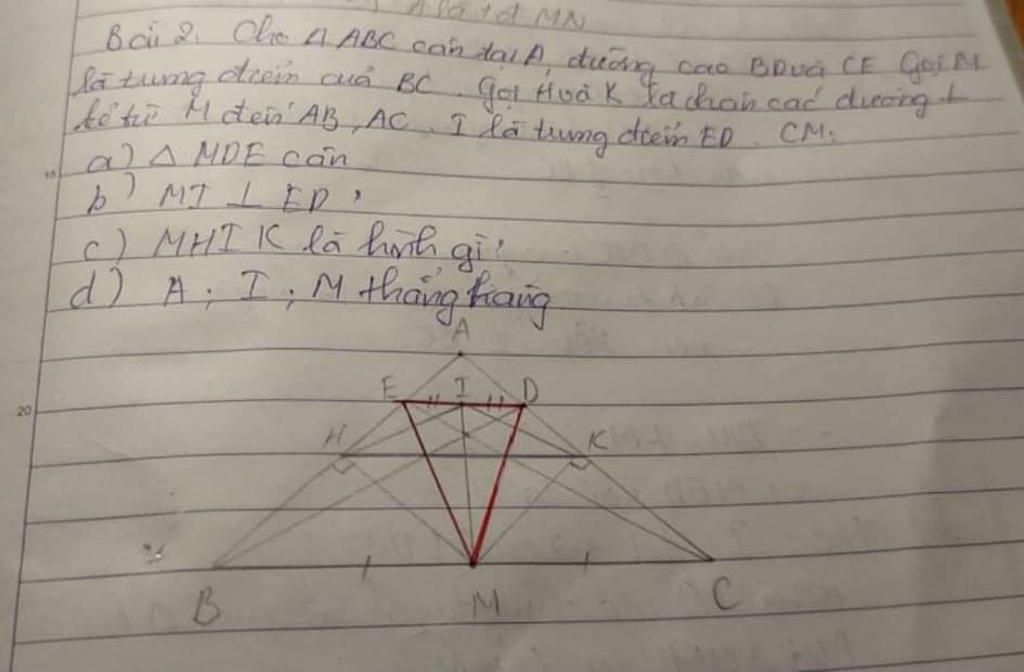 A là t đ MN
Bài 2. Cho Δ ABC cân tại A, đường cao BD và CE Gọi M
là trung điểm của BC. Gọi H và K là chân các đường ⊥
kẻ từ M đến AB, AC. I là trung điểm ED. CM:
a) Δ MDE cân
b) MI ⊥ ED,
15
c) MHIK là hình gì?
d) A; I; M thẳng hàng
A
E I D
20
H K
B M C